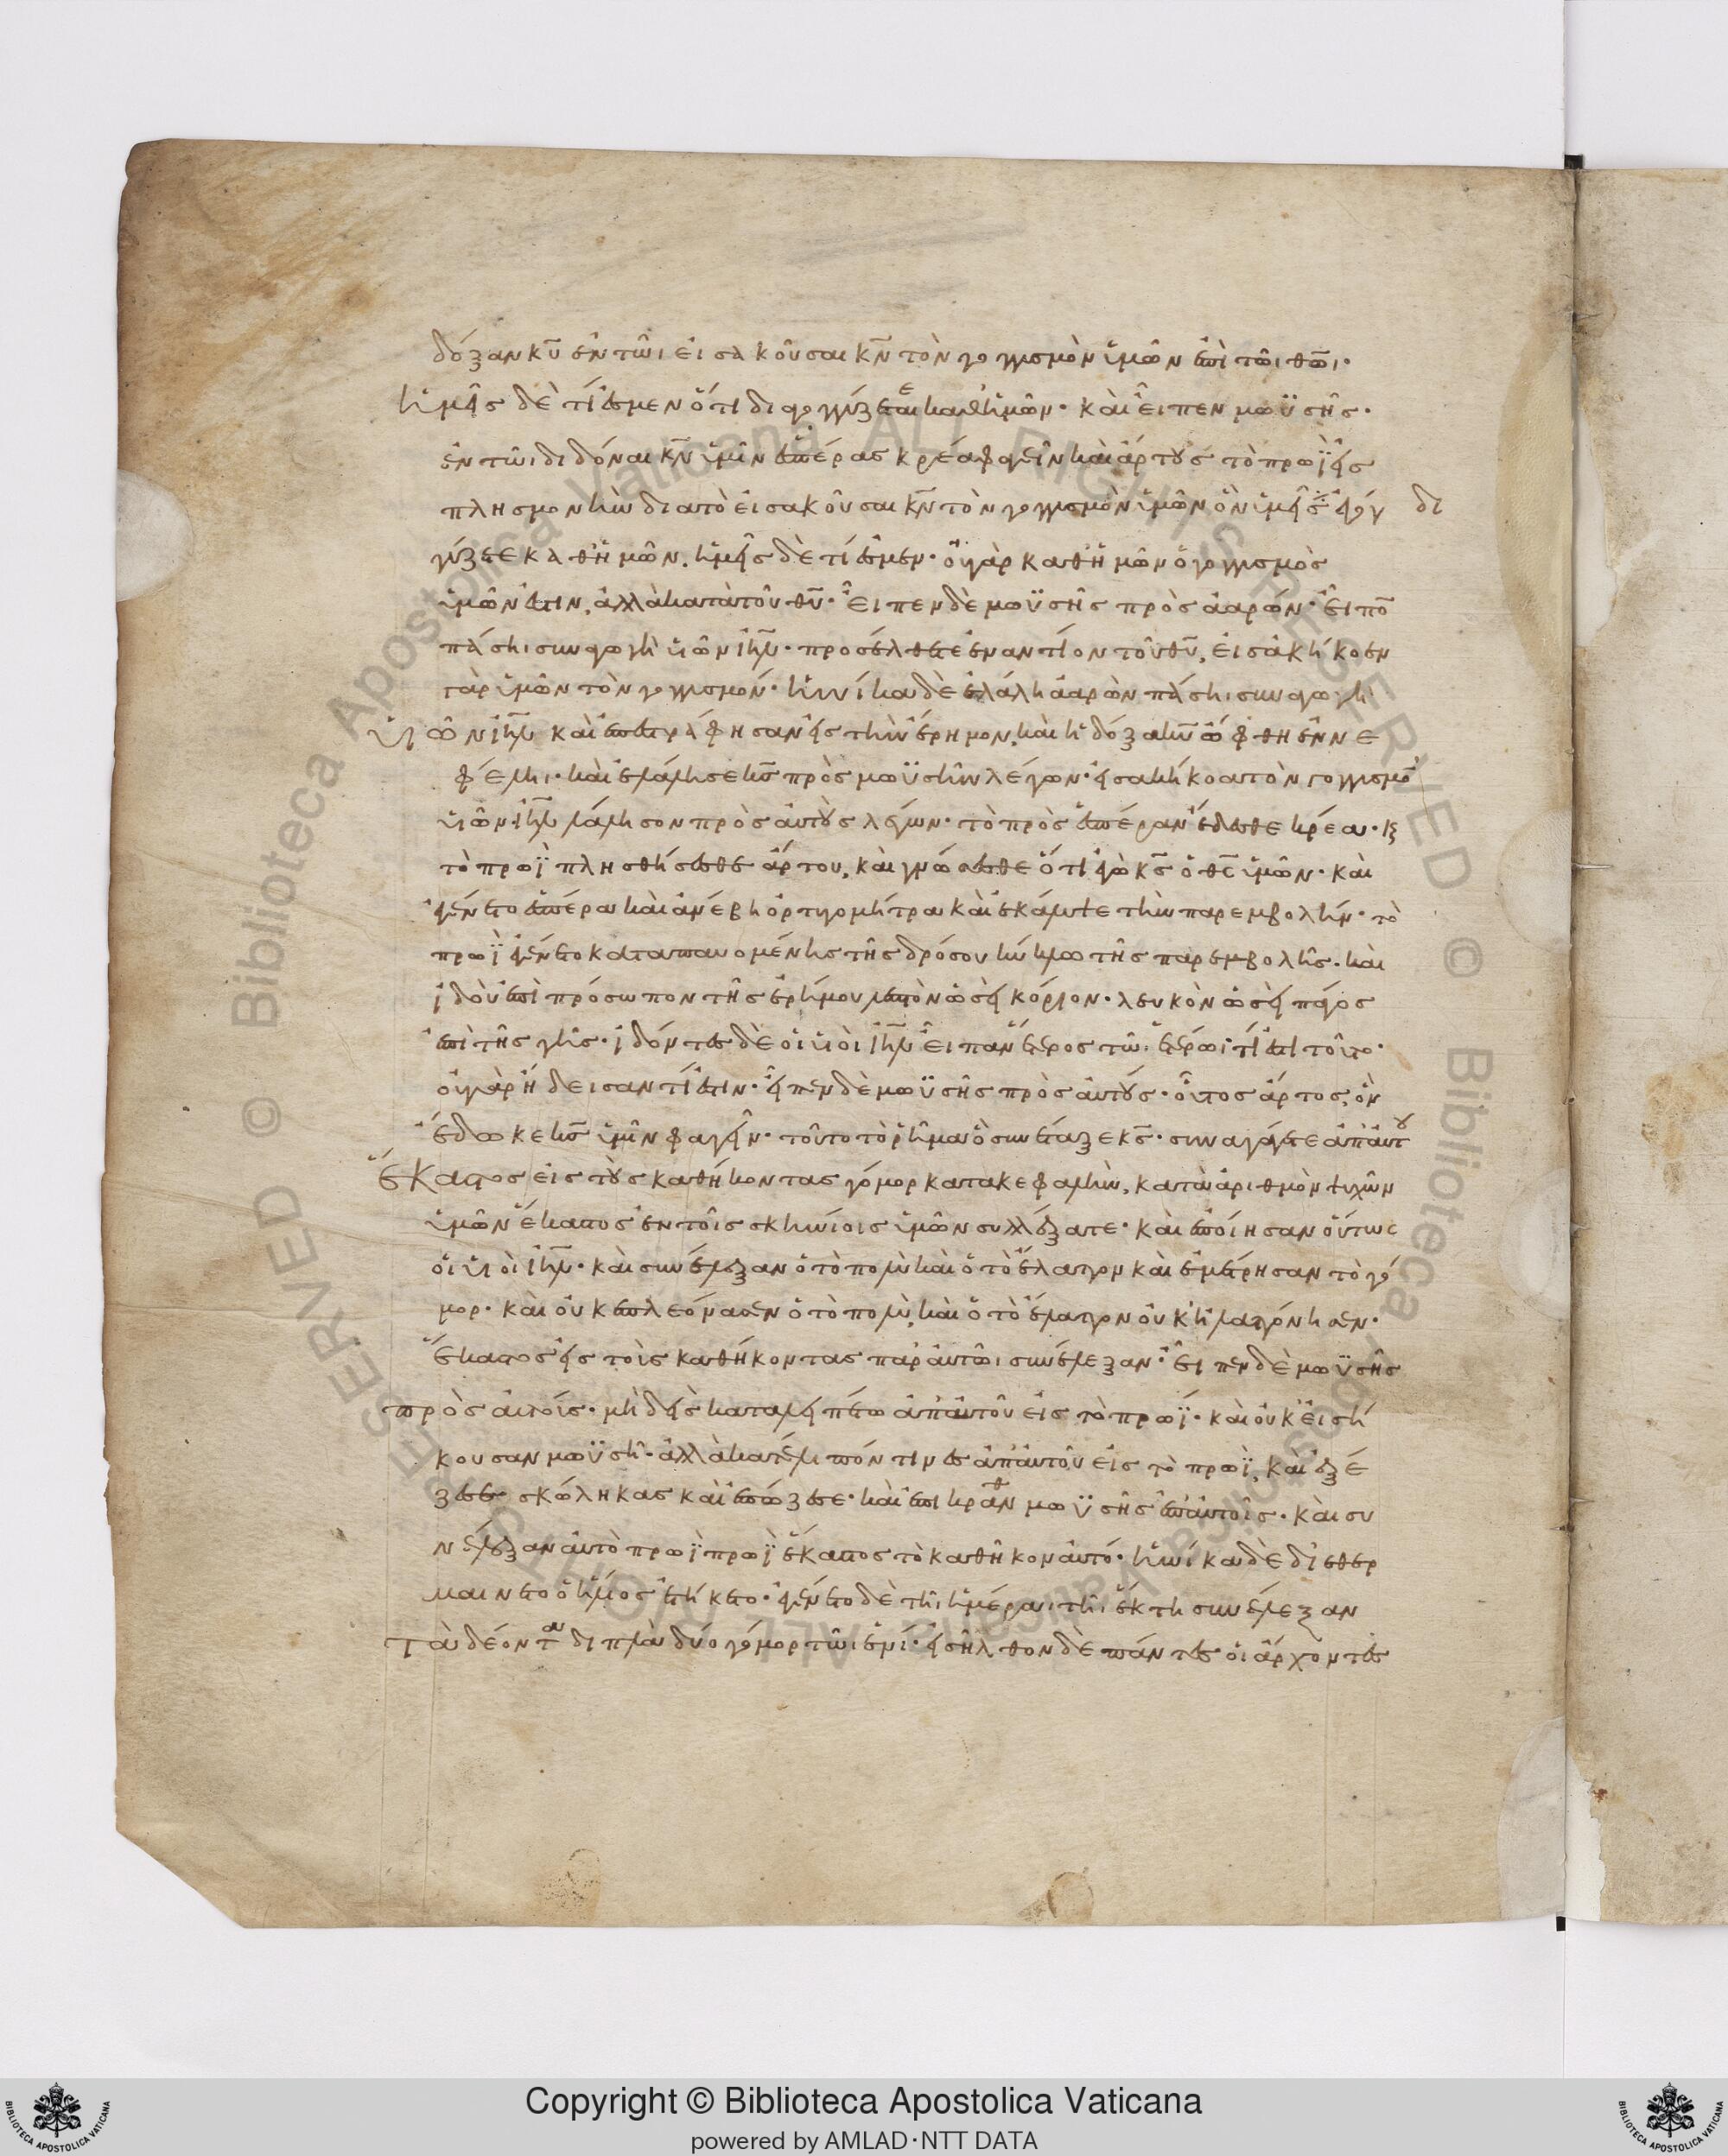 δόξαν κ̅υ̅ ἐν τῶι εἰσακοῦσαι κ̅ν̅ τὸν γογγυσμὸν ὑμῶν ἐπὶ τῶι θ̅ῶ̅ι·
ἡμεῖς δὲ τί ἐσμεν ὅτι διαγογγύζεται καθ ἡμῶν· καὶ εἶπεν μωϋσῆς·
ἐν τῶι διδόναι κ̅ν̅ ὑμῖν ἑσπέρας κρέα φαγεῖν καὶ ἄρτους τὸ πρωῒ εἰς
πλησμονὴν διατὸ εἰσακοῦσαι κ̅ν̅ τὸν γογγυσμὸν ὑμῶν ὃν ὑμεῖς ἐγόγ δι
γύζετε καθ ἡμῶν. ἡμεῖς δὲ τί ἐσμεν· οὐ γὰρ καθ ἡμῶν ὁ γογγυσμὸς
ὑμῶν ἐστιν, ἀλλὰ κατὰ τοῦ θ̅υ̅· εἶπεν δὲ μωϋσῆς πρὸς ἀαρών· εἶπο̅
πάσηι συναγωγῆ υἱῶν ι̅η̅λ̅· προσέλθετε ἐναντίον τοῦ θ̅υ̅, εἰσακήκοεν
γὰρ ὑμῶν τὸν γογγυσμόν· ἡνίκα δὲ ἐλάλη ἀαρὼν πάσηι συναγωγῆ
υἱῶν ι̅η̅λ̅ καὶ ἐπεστράφησαν εἰς τὴν ἔρημον, καὶ ἡ δόξα κ̅υ̅ ὤφθη ἐν νε
φέληι· καὶ ἐλάλησε κ̅ς̅ πρὸς μωϋσῆν λέγων· εἰσακήκοα τὸν γογγυσμὸ̅
υἱῶν ι̅η̅λ̅ λάλησον πρὸς αὐτοὺς λέγων· τὸ πρὸς ἑσπέραν ἔδεσθε κρέα· κ̀
τὸ πρωῒ πλησθήσεσθε ἄρτου, καὶ γνώσεσθε ὅτι ἐγὼ κ̅ς̅ ὁ θ̅ς̅ ὑμῶν· καὶ
ἐγένετο ἑσπέρα καὶ ἀνέβη ὀρτυγομήτρα καὶ ἐκάλυψε τὴν παρεμβολήν· τὸ
πρωῒ ἐγένετο καταπαυομένης τῆς δρόσου κύκλω τῆς παρεμβολῆς· καὶ
ἰδοὺ ἐπὶ πρόσωπον τῆς ἐρήμου λεπτὸν ὡσεὶ κόριον· λευκὸν ὡσεὶ πάγος
ἐπὶ τῆς γῆς· ἰδόντες δὲ οἱ υἱοὶ ι̅η̅λ̅ εἶπαν ἕτερος τῶι ἑτέρωι· τί ἐστι τοῦτο·
οὐ γὰρ ἤδεισαν τί ἐστιν· εἶπεν δὲ μωϋσῆς πρὸς αὐτούς· οὗτος ἄρτος, ὃν
ἔδωκε κ̅ς̅ ὑμῖν φαγεῖν· τοῦτο τὸ ῥῆμα ὃ συνέταξε κ̅ς̅· συναγάγετε ἀπ αὐτοῦ
ἕκαστος εἰς τοὺς καθήκοντας γόμορ κατα κεφαλὴν, κατὰ ἀριθμὸν ψυχῶν
ὑμῶν ἕκαστος ἐν τοῖς σκηνίοις ὑμῶν συλλέξατε· καὶ ἐποίησαν οὕτως
οἱ υἱοὶ ι̅η̅λ̅· καὶ συνέλεξαν ὁ τὸ πολὺ καὶ ὁ τὸ ἔλαττον καὶ ἐμέτρησαν τὸ γό
μορ· καὶ οὐκ ἐπλεόνασεν ὁ τὸ πολὺ, καὶ ὁ τὸ ἔλαττον οὐκ ἠλαττόνησεν·
ἕκαστος εἰς τοὺς καθήκοντας παρ αὐτῶι συνέλεξαν· εἶπεν δὲ μωϋσῆς
πρὸς αὐτούς· μὴδεὶς καταλειπέτω ἀπ αὐτοῦ εἰς τὸ πρωΐ· καὶ οὐκ εἰσή
κουσαν μωϋσῆ· ἀλλὰ κατέλιπόν τινες ἀπ αὐτοῦ εἰς τὸ πρωΐ, καὶ ἐξέ
ζεσε σκώληκας καὶ ἐπώζεσε· καὶ ἐπικράνθη μωϋσῆς ἐπ αὐτοῖς· καὶ συ
νέλεξαν αὐτὸ πρωῒ πρωῒ ἕκαστος τὸ καθῆκον αὐτό· ἡνίκα δὲ διεθερ
μαινετο ὁ ἥλιος ἐτήκετο· ἐγένετο δὲ τῆι ἡμέραι τῆι ἕκτη συνέλεξαν
τὰ δέοντα διπλᾶ δύο γόμορ τῶι ἑνί· εἰσῆλθον δὲ πάντες οἱ ἄρχοντες
Copyright © Biblioteca Apostolica Vaticana
powered by AMLAD·NTT DATA